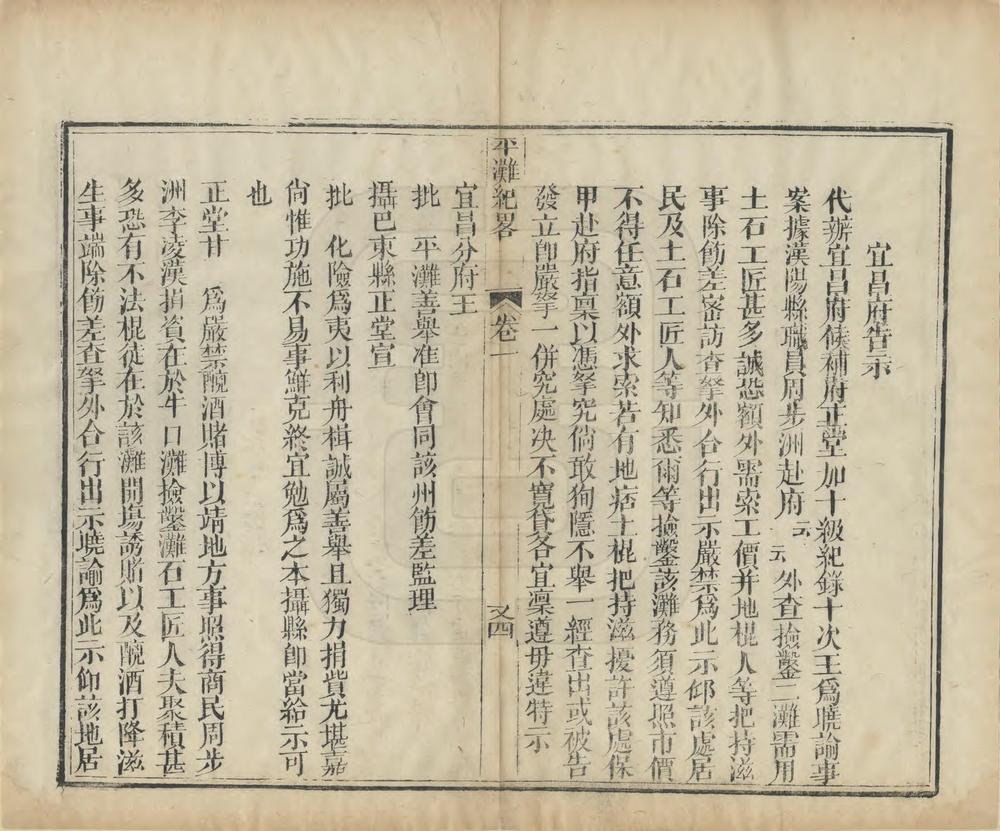 宜昌府告示
代辦宜昌府候補府正堂加十級紀錄十次王為曉諭事
案據漢陽縣職員周步洲赴府云云外查撿鑿二灘需用
土石工匠甚多誠恐額外需索工價并地棍人等把持滋
事除飭差密訪查拏外合行出示嚴禁為此示仰該處居
民及土石工匠人等知悉爾等撿鑿該灘務須遵照市價
不得任意額外求索若有地痞土棍把持滋擾許該處保
甲赴府指稟以憑拏究倘敢狥隱不舉一經查出或被告
發立卽嚴拏一併究處决不寬貸各宜凜遵毋違特示
平灘紀畧
卷一
又四
宜昌分府王
批　平灘善舉准卽會同該州飭差監理
攝巴東縣正堂宣
批　化險為夷以利舟楫誠屬善舉且獨力捐貲尤堪嘉
尙惟功施不易事鮮克終宜勉為之本攝縣卽當給示可
也
正堂甘　為嚴禁酗酒賭博以靖地方事照得商民周步
洲李凌漢捐資在於牛口灘撿鑿灘石工匠人夫聚積甚
多恐有不法棍徒在於該灘開塲誘賭以及酗酒打降滋
生事端除飭差查拏外合行出示曉諭為此示仰該地居